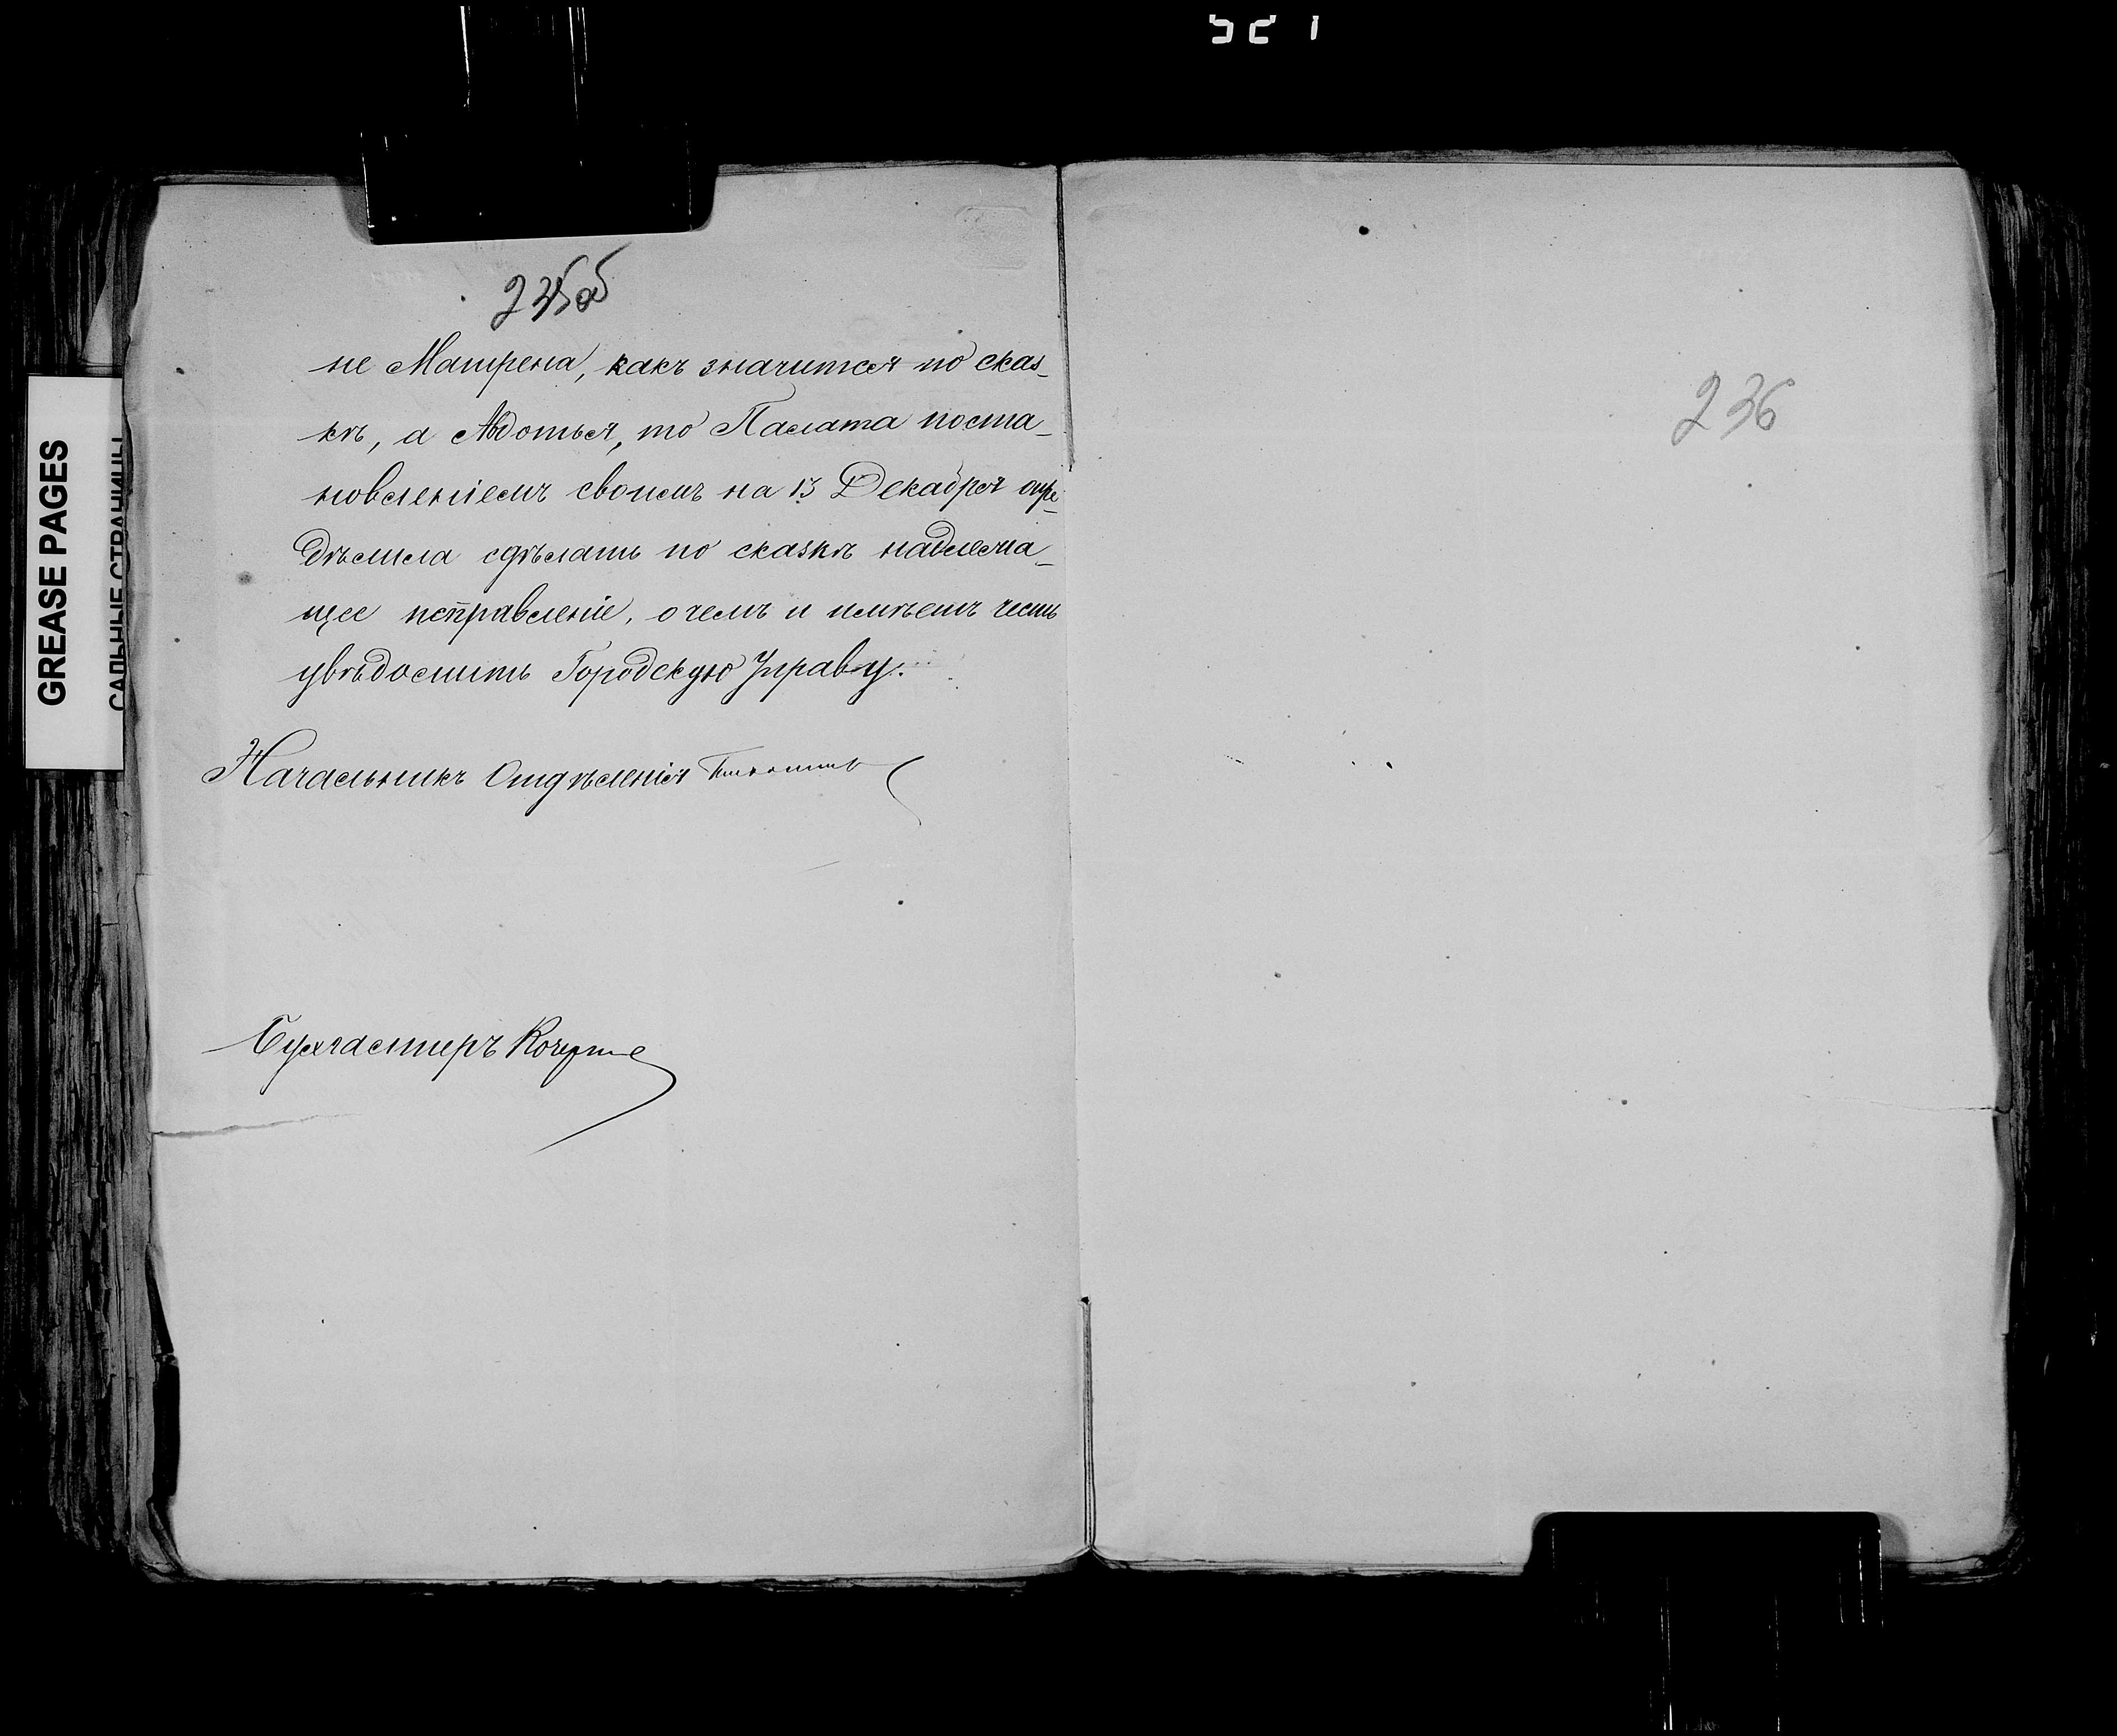 521
GREASE PAGES
САЛЬНЫЕ СТРАНИЦЫ
235об
не Матрена, какъ значится по сказ-
кѣ, а Авдотья, то Палата поста-
новленіемъ своимъ на 13 Декабря опре-
дѣлила сдѣлать по сказкѣ надлежа-
щее исправленіе, о чемъ и имѣетъ честь
увѣдомить Городскую Управу.
Начальникъ Отдѣленія
Бухгалтеръ
236